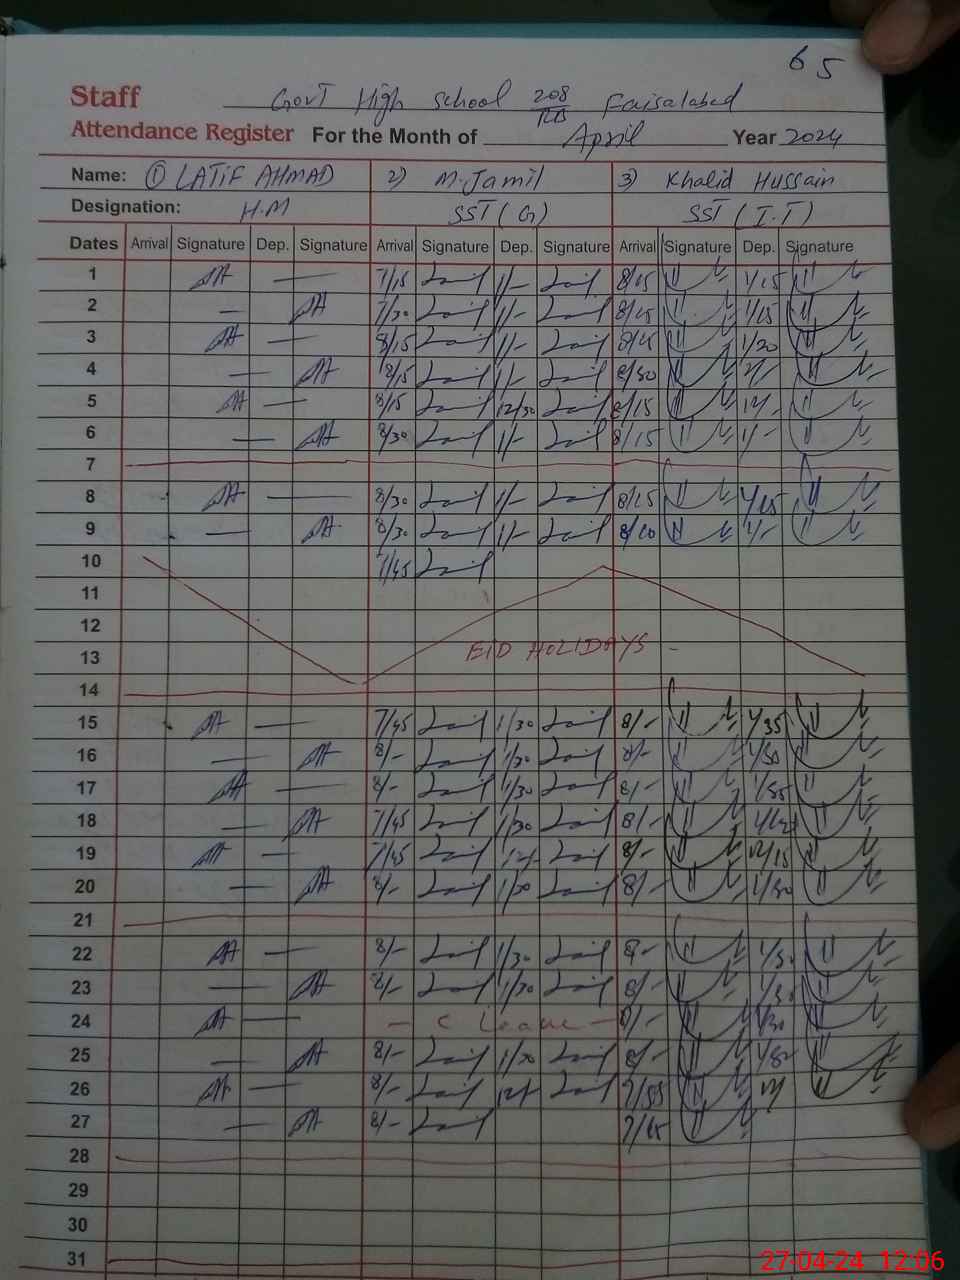 65
Staff Govt High school 208/RB Faisalabad
Attendance Register For the Month of April Year 2024
Name: ① LATIF AHMAD 2) M. Jamil 3) Khalid Hussain
Designation: H.M SST (G) SST (I.T)
Dates Arrival Signature Dep. Signature Arrival Signature Dep. Signature Arrival Signature Dep. Signature
1 — 7/15 1/- 8/15 1/15
2 — 7/30 1/- 8/15 1/15
3 — 8/15 1/- 8/15 1/20
4 — 8/15 1/-
5 — 8/15 12/30 8/15 12/-
6 — 8/30 1/- 8/15 1/-
7
8 — 8/30 1/- 8/15 1/15
9 — 8/30 1/- 8/10 1/-
10 7/45
11
12
13 EID HOLIDAYS -
14
15 — 7/45 1/30 8/- 1/35
16 — 8/- 1/30 8/- 1/30
17 — 8/- 1/30 8/-
18 — 7/45 1/30 8/-
19 — 7/45 12/- 8/- 12/15
20 — 8/- 1/30 8/- 1/30
21
22 — 8/- 1/30 8/- 1/30
23 — 8/- 1/30 8/- 1/30
24 — — C Leave — 8/- 1/30
25 — 8/- 1/30 8/-
26 — 8/- 12/- 7/55 12/
27 — 8/- 7/45
28
29
30
31
27-04-24 12:06